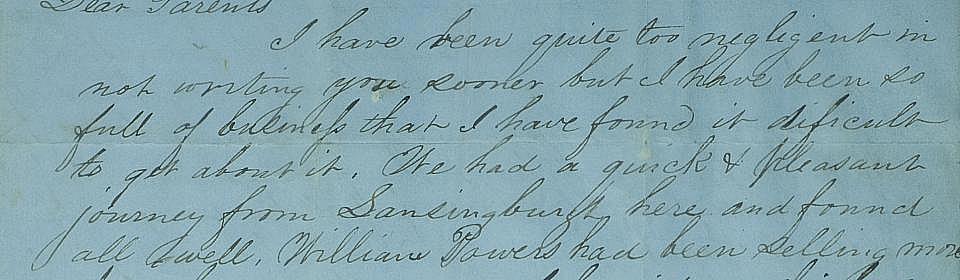 Dear Parents
I have been quite too negligent in
not writing you sooner but I have been so
full of business that I have found it dificult
to get about it. We had a quick & pleasant
journey from Lansingburgh here and found
all well. William Powers had been selling more